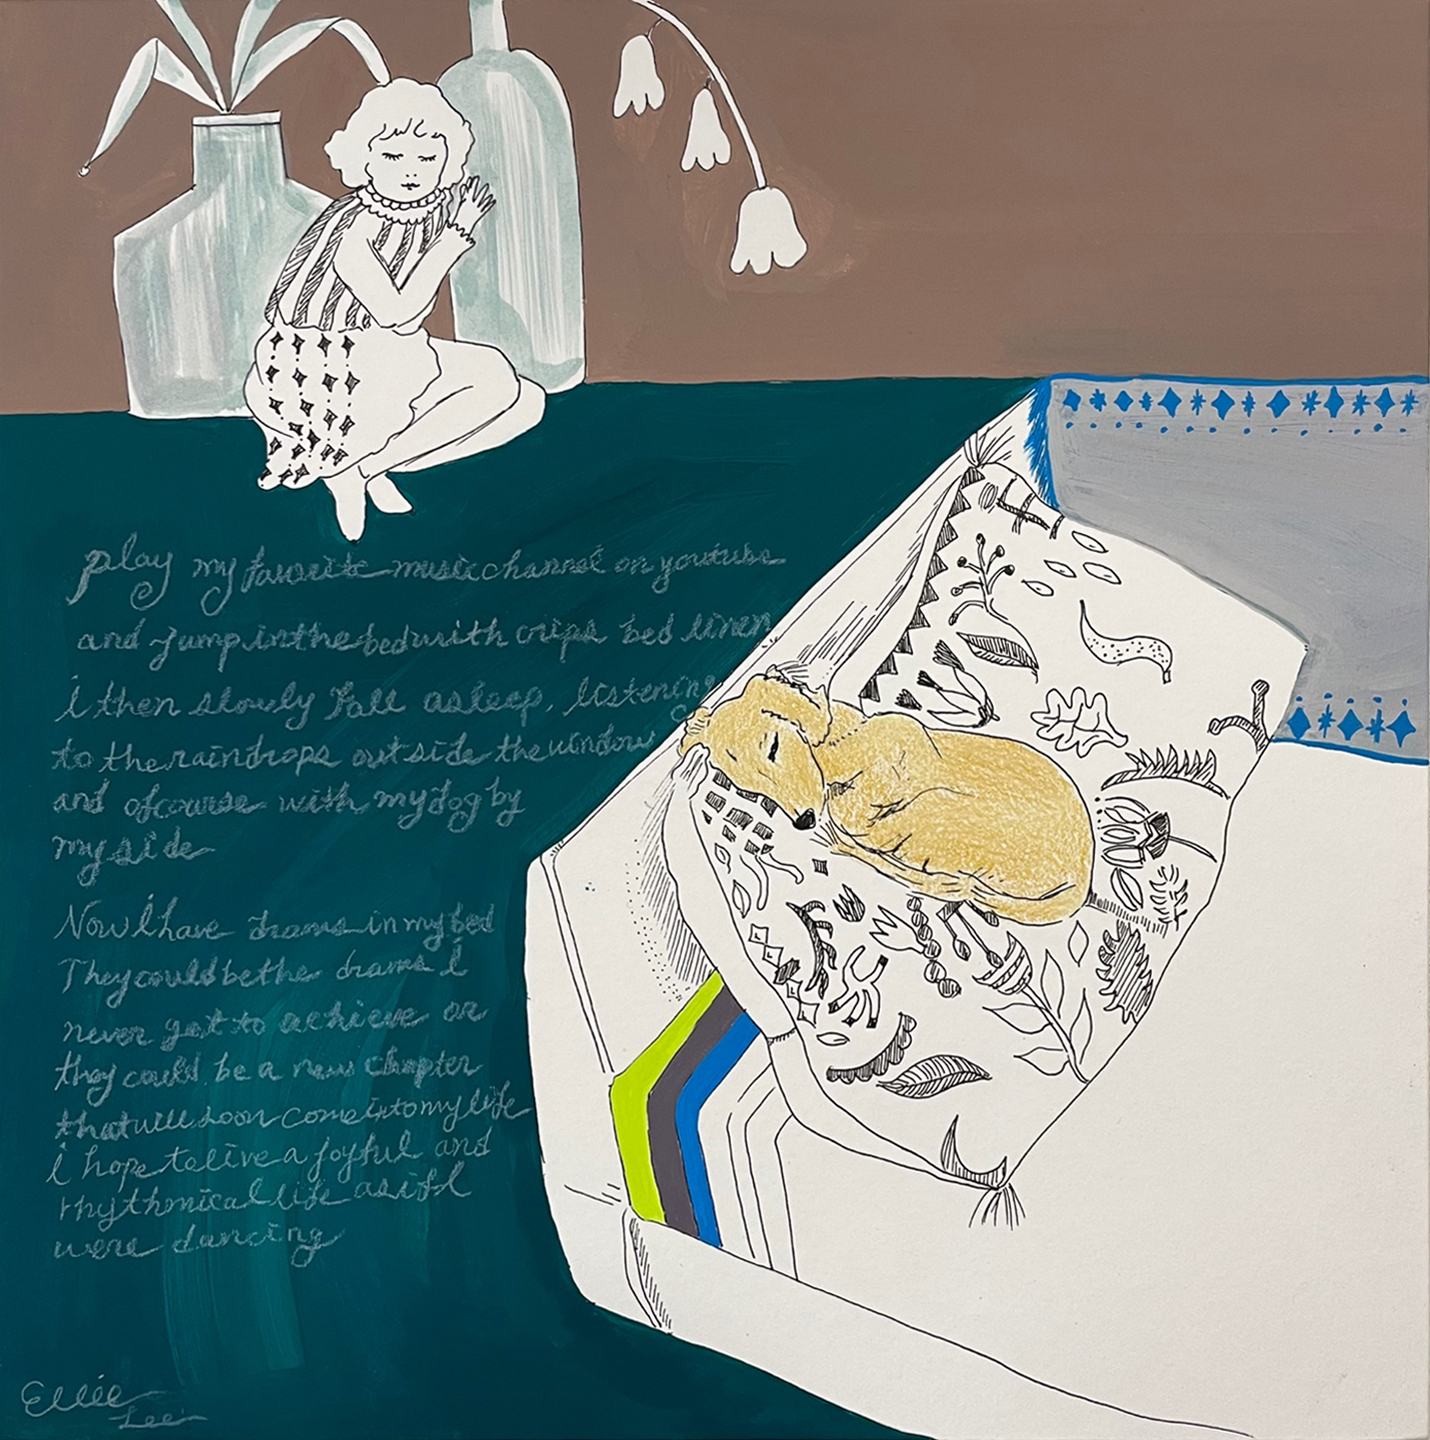 play my favorite music channel on youtube
and jump in the bed with crips bed linen
i then slowly fall asleep, listening
to the raindrops out side the window
and ofcourse with my dog by
my side
Now I have drams in my bed
They could be the drams I
never get to achieve or
they could be a new chapter
that will soon come into my life
i hope to live a joyful and
rhythmical life as if I
were dancing
Ellie
Lee